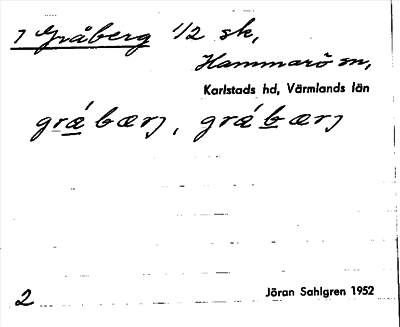 7 Gråberg 1/2 sk,
Hammarö sn,
Karlstads hd, Värmlands län
grá bærj, grá bærj
2
Jöran Sahlgren 1952